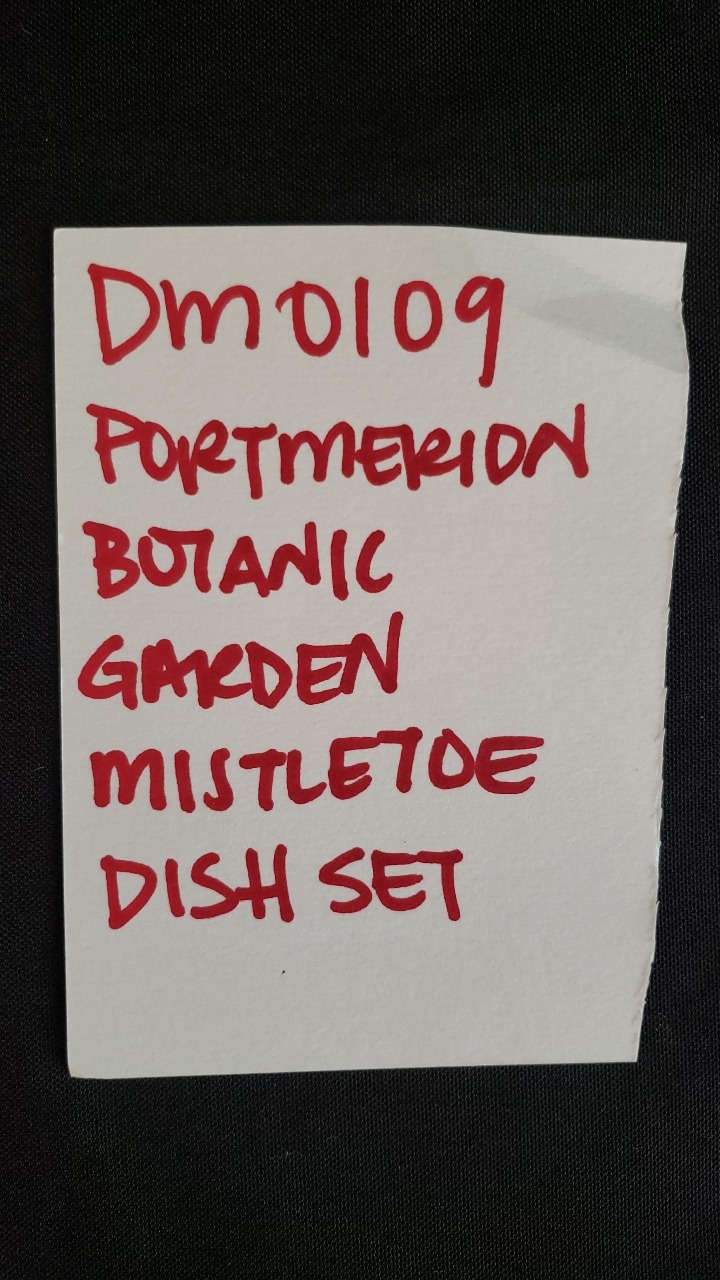 Dm0109
PORTMERION
BOTANIC
GARDEN
MISTLETOE
DISH SET